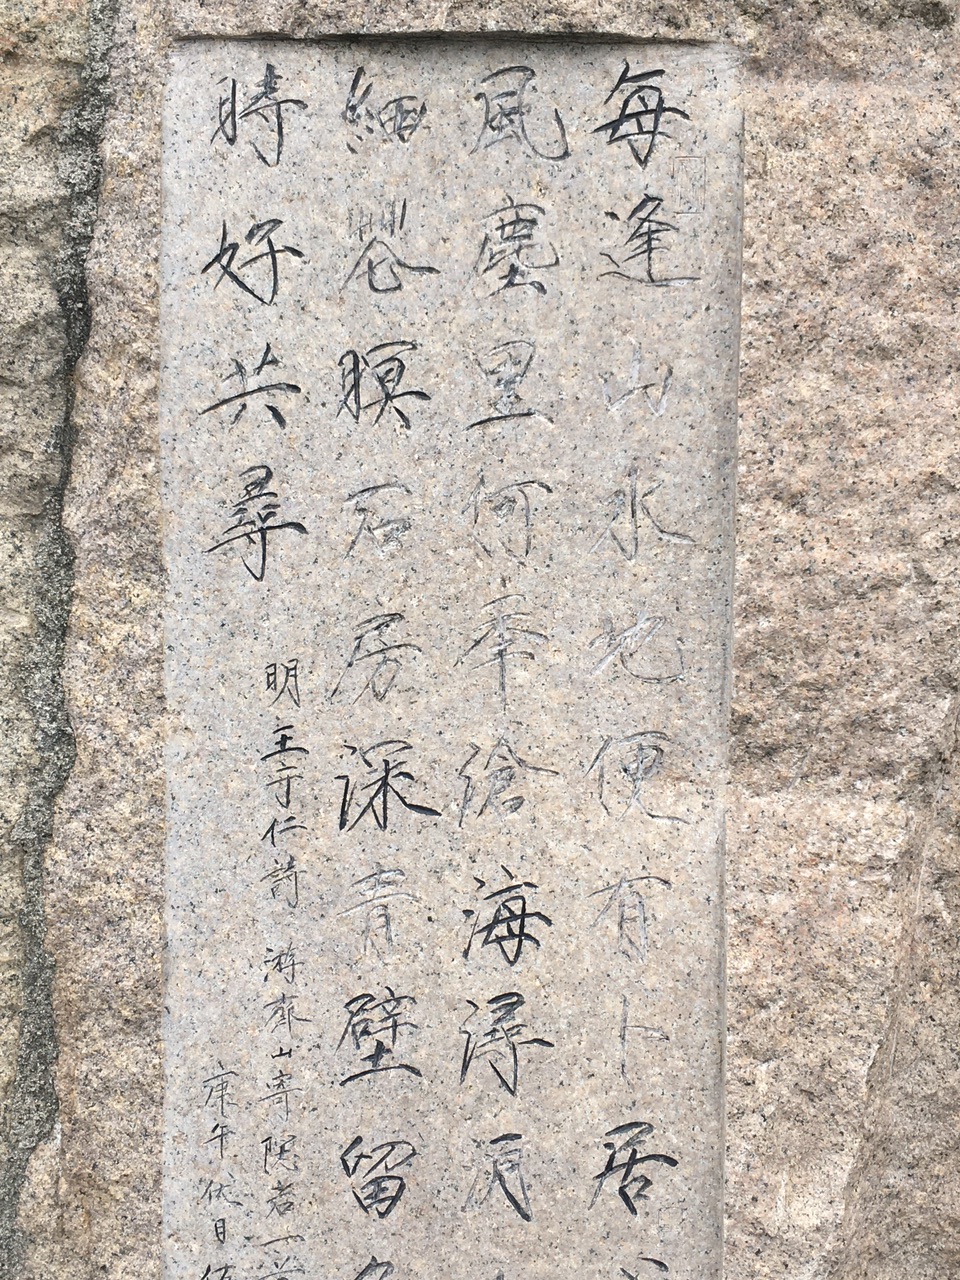 每逢山水地便有卜居
風塵里何年滄海潯洞
細花暝石房深青壁留
時好共尋
明王守仁詩 游齊山寄隱岩一
庚午伏日